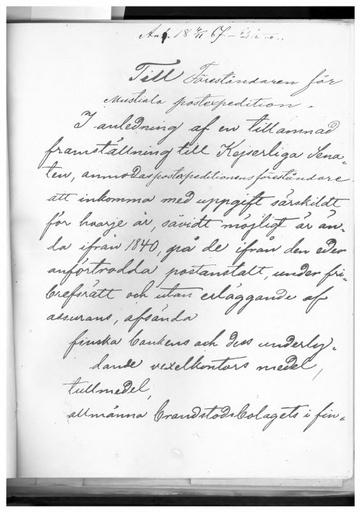 Till Föreståndaren för
Mustiala postexpedition.
I anledning af en tillämnad
framställning till Kejserliga Sena-
ten, anmodas postexpeditionens föreståndare
att inkomma med uppgift särskildt
för hvarje år, såvidt möjligt är än-
da ifrån 1840, på de ifrån den eder
anförtrodda postanstalt, under fri-
brefsrätt och utan erläggande af
assurans, afsända
finska bankens och dess underly-
dande vexelkontors medel,
tullmedel,
allmänna brandstodsbolagets i fin-